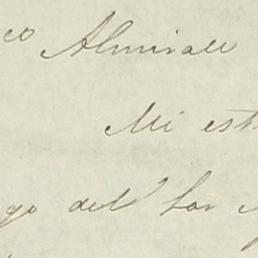 co Almirall
Mi est
go del Sor